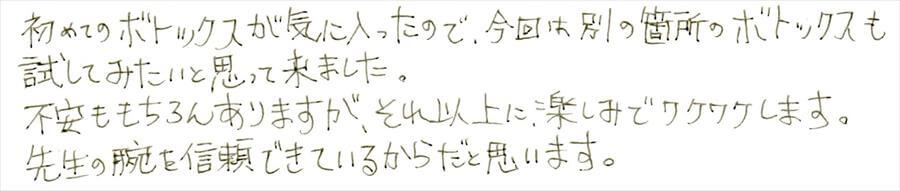 初めてのボトックスが気に入ったので、今回は別の箇所のボトックスも
試してみたいと思って来ました。
不安ももちろんありますが、それ以上に、楽しみでワクワクします。
先生の腕を信頼できているからだと思います。